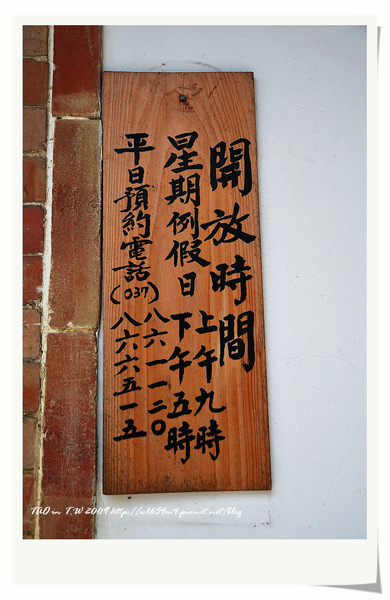 開放時間
星期例假日
上午九時
下午五時
平日預約電話(037)
八六一一二〇
八六六五一五
TAD in T.W 2009